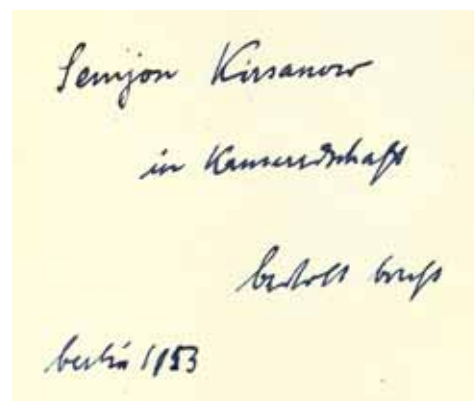 Semjon Kirsanow
in Kameradschaft
bertolt brecht
berlin 1953